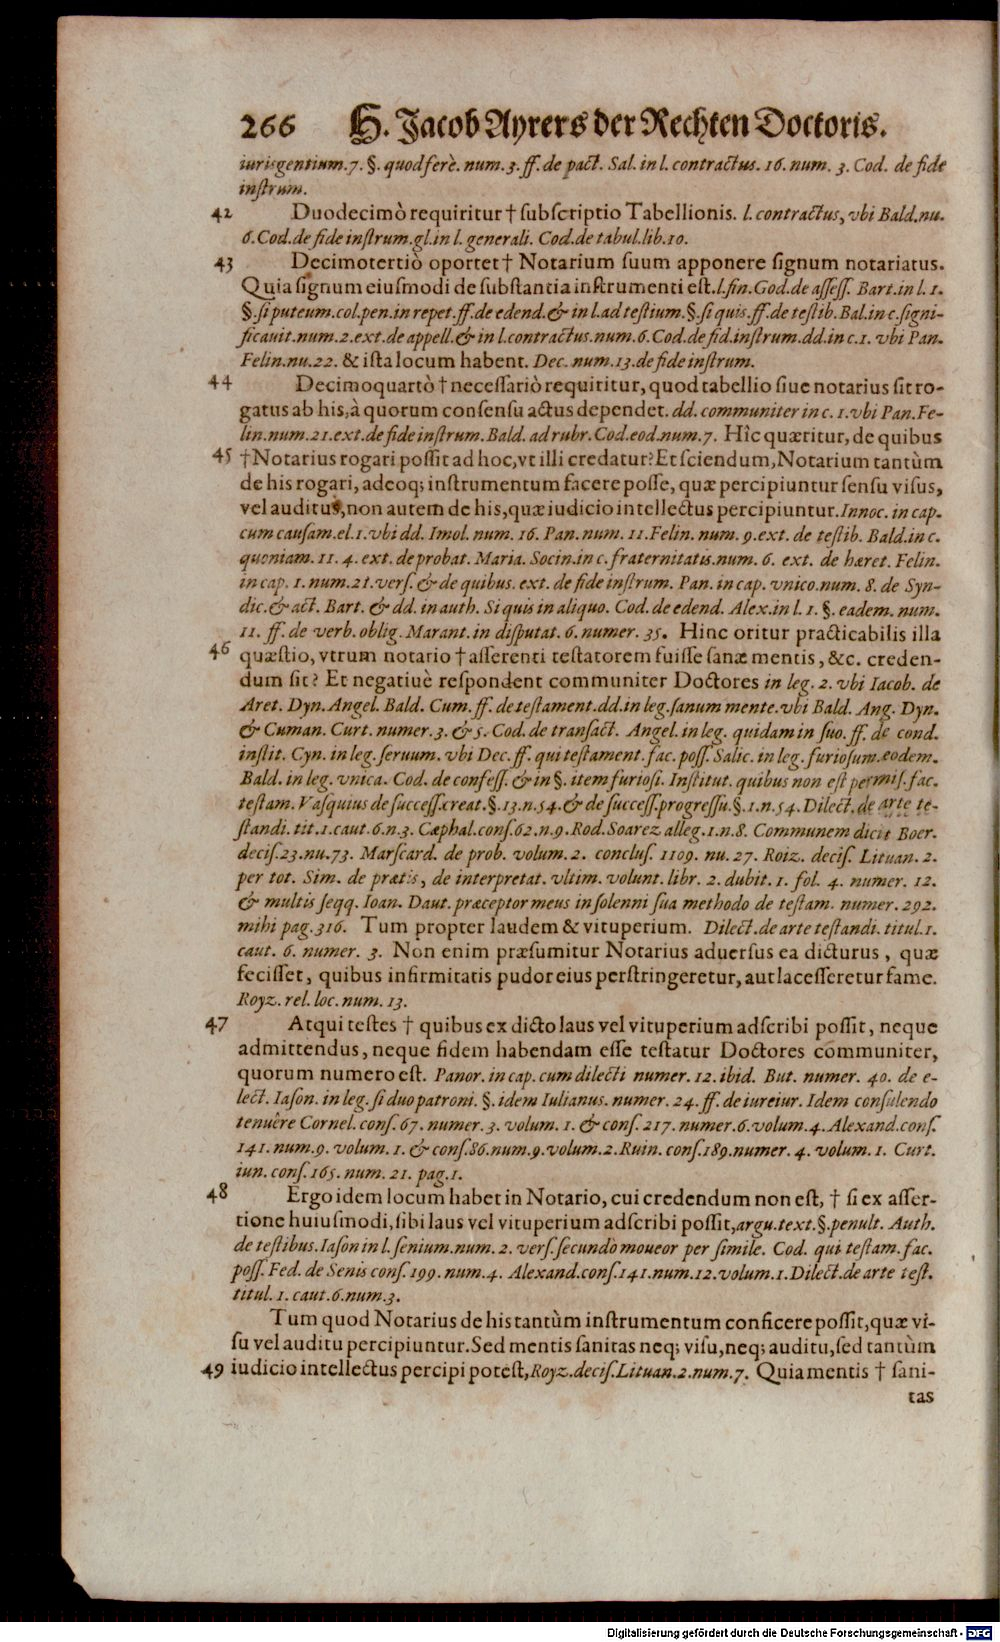 266 H. Jacob Ayrers der Rechten Doctoris.
iuris gentium. 7. §. quod ferè. num. 3. ff. de pact. Sal. in l. contractus. 16. num. 3. Cod. de fide
instrum.
42 Duodecimò requiritur † subscriptio Tabellionis. l. contractus, vbi Bald. nu.
6. Cod. de fide instrum. gl. in l. generali. Cod. de tabul. lib. 10.
43 Decimotertiò oportet † Notarium suum apponere signum notariatus.
Quia signum eiusmodi de substantia instrumenti est. l. fin. God. de assess. Bart. in l. 1.
§. si puteum. col. pen. in repet. ff. de edend. & in l. ad testium. §. si quis. ff. de testib. Bal. in c. signi-
ficauit. num. 2. ext. de appell. & in l. contractus. num. 6. Cod. de fid. instrum. dd. in c. 1. vbi Pan.
Felin. nu. 22. & ista locum habent. Dec. num. 13. de fide instrum.
44 Decimoquartò † necessariò requiritur, quod tabellio siue notarius sit ro-
gatus ab his, à quorum consensu actus dependet. dd. communiter in c. 1. vbi Pan. Fe-
lin. num. 21. ext. de fide instrum. Bald. ad rubr. Cod. eod. num. 7. Hîc quæritur, de quibus
45 † Notarius rogari possit ad hoc, vt illi credatur? Et sciendum, Notarium tantùm
de his rogari, adeoq; instrumentum facere posse, quæ percipiuntur sensu visus,
vel auditus, non autem de his, quæ iudicio intellectus percipiuntur. Innoc. in cap.
cum causam. el. 1. vbi dd. Imol. num. 16. Pan. num. 11. Felin. num. 9. ext. de testib. Bald. in c.
quoniam. 11. 4. ext. de probat. Maria. Socin. in c. fraternitatis. num. 6. ext. de hæret. Felin.
in cap. 1. num. 21. vers. & de quibus. ext. de fide instrum. Pan. in cap. vnico. num. 8. de Syn-
dic. & act. Bart. & dd. in auth. Si quis in aliquo. Cod. de edend. Alex. in l. 1. §. eadem. num.
11. ff. de verb. oblig. Marant. in disputat. 6. numer. 35. Hinc oritur practicabilis illa
46 quæstio, vtrum notario † asserenti testatorem fuisse sanæ mentis, &c. creden-
dum sit? Et negatiuè respondent communiter Doctores in leg. 2. vbi Iacob. de
Aret. Dyn. Angel. Bald. Cum. ff. de testament. dd. in leg. sanum mente. vbi Bald. Ang. Dyn.
& Cuman. Curt. numer. 3. & 5. Cod. de transact. Angel. in leg. quidam in suo. ff. de cond.
instit. Cyn. in leg. seruum. vbi Dec. ff. qui testament. fac. poss. Salic. in leg. furiosum. eodem.
Bald. in leg. vnica. Cod. de confess. & in §. item furiosi. Institut. quibus non est permis. fac.
testam. Vasquius de success. creat. §. 13. n. 54. & de success. progressu. §. 1. n. 54. Dilect. de arte te-
standi. tit. 1. caut. 6. n. 3. Cæphal. cons. 62. n. 9. Rod. Soarez alleg. 1. n. 8. Communem dicit Boer.
decis. 23. nu. 73. Marscard. de prob. volum. 2. conclus. 1109. nu. 27. Roiz. decis. Lituan. 2.
per tot. Sim. de prætis, de interpretat. vltim. volunt. libr. 2. dubit. 1. fol. 4. numer. 12.
& multis seqq. Ioan. Daut. præceptor meus in solenni sua methodo de testam. numer. 292.
mihi pag. 316. Tum propter laudem & vituperium. Dilect. de arte testandi. titul. 1.
caut. 6. numer. 3. Non enim præsumitur Notarius aduersus ea dicturus, quæ
fecisset, quibus infirmitatis pudor eius perstringeretur, aut lacesseretur fame.
Royz. rel. loc. num. 13.
47 Atqui testes † quibus ex dicto laus vel vituperium adscribi possit, neque
admittendus, neque fidem habendam esse testatur Doctores communiter,
quorum numero est. Panor. in cap. cum dilecti numer. 12. ibid. But. numer. 40. de e-
lect. Iason. in leg. si duo patroni. §. idem Iulianus. numer. 24. ff. de iureiur. Idem consulendo
tenuêre Cornel. cons. 67. numer. 3. volum. 1. & cons. 217. numer. 6. volum. 4. Alexand. cons.
141. num. 9. volum. 1. & cons. 86. num. 9. volum. 2. Ruin. cons. 189. numer. 4. volum. 1. Curt.
iun. cons. 165. num. 21. pag. 1.
48 Ergo idem locum habet in Notario, cui credendum non est, † si ex asser-
tione huiusmodi, sibi laus vel vituperium adscribi possit, argu. text. §. penult. Auth.
de testibus. Iason in l. senium. num. 2. vers. secundò moueor per simile. Cod. qui testam. fac.
poss. Fed. de Senis cons. 199. num. 4. Alexand. cons. 141. num. 12. volum. 1. Dilect. de arte test.
titul. 1. caut. 6. num. 3.
Tum quod Notarius de his tantùm instrumentum conficere possit, quæ vi-
su vel auditu percipiuntur. Sed mentis sanitas neq; visu, neq; auditu, sed tantùm
49 iudicio intellectus percipi potest, Royz. decis. Lituan. 2. num. 7. Quia mentis † sani-
tas
Digitalisierung gefördert durch die Deutsche Forschungsgemeinschaft - DFG